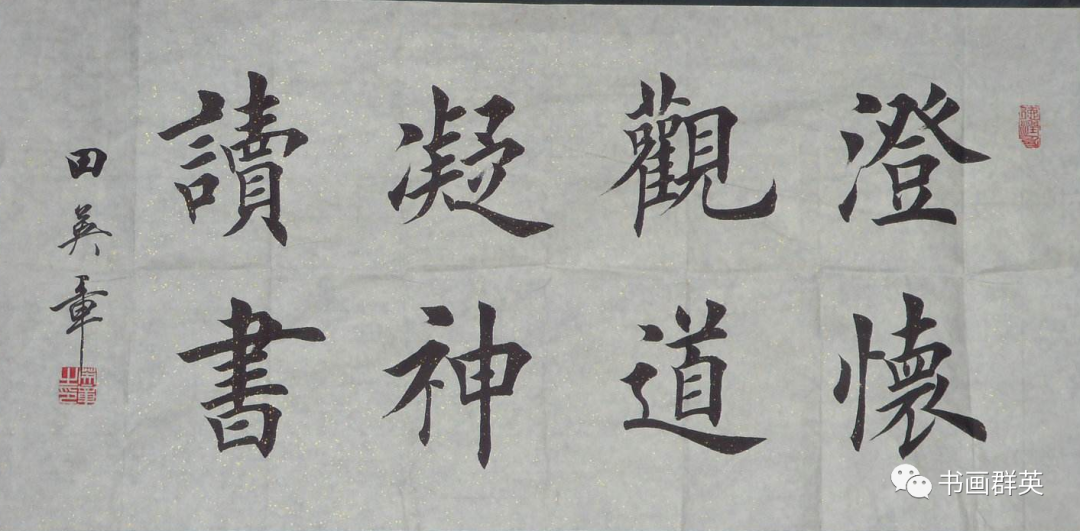 澄懷
觀道
凝神
讀書
田英章
书画群英